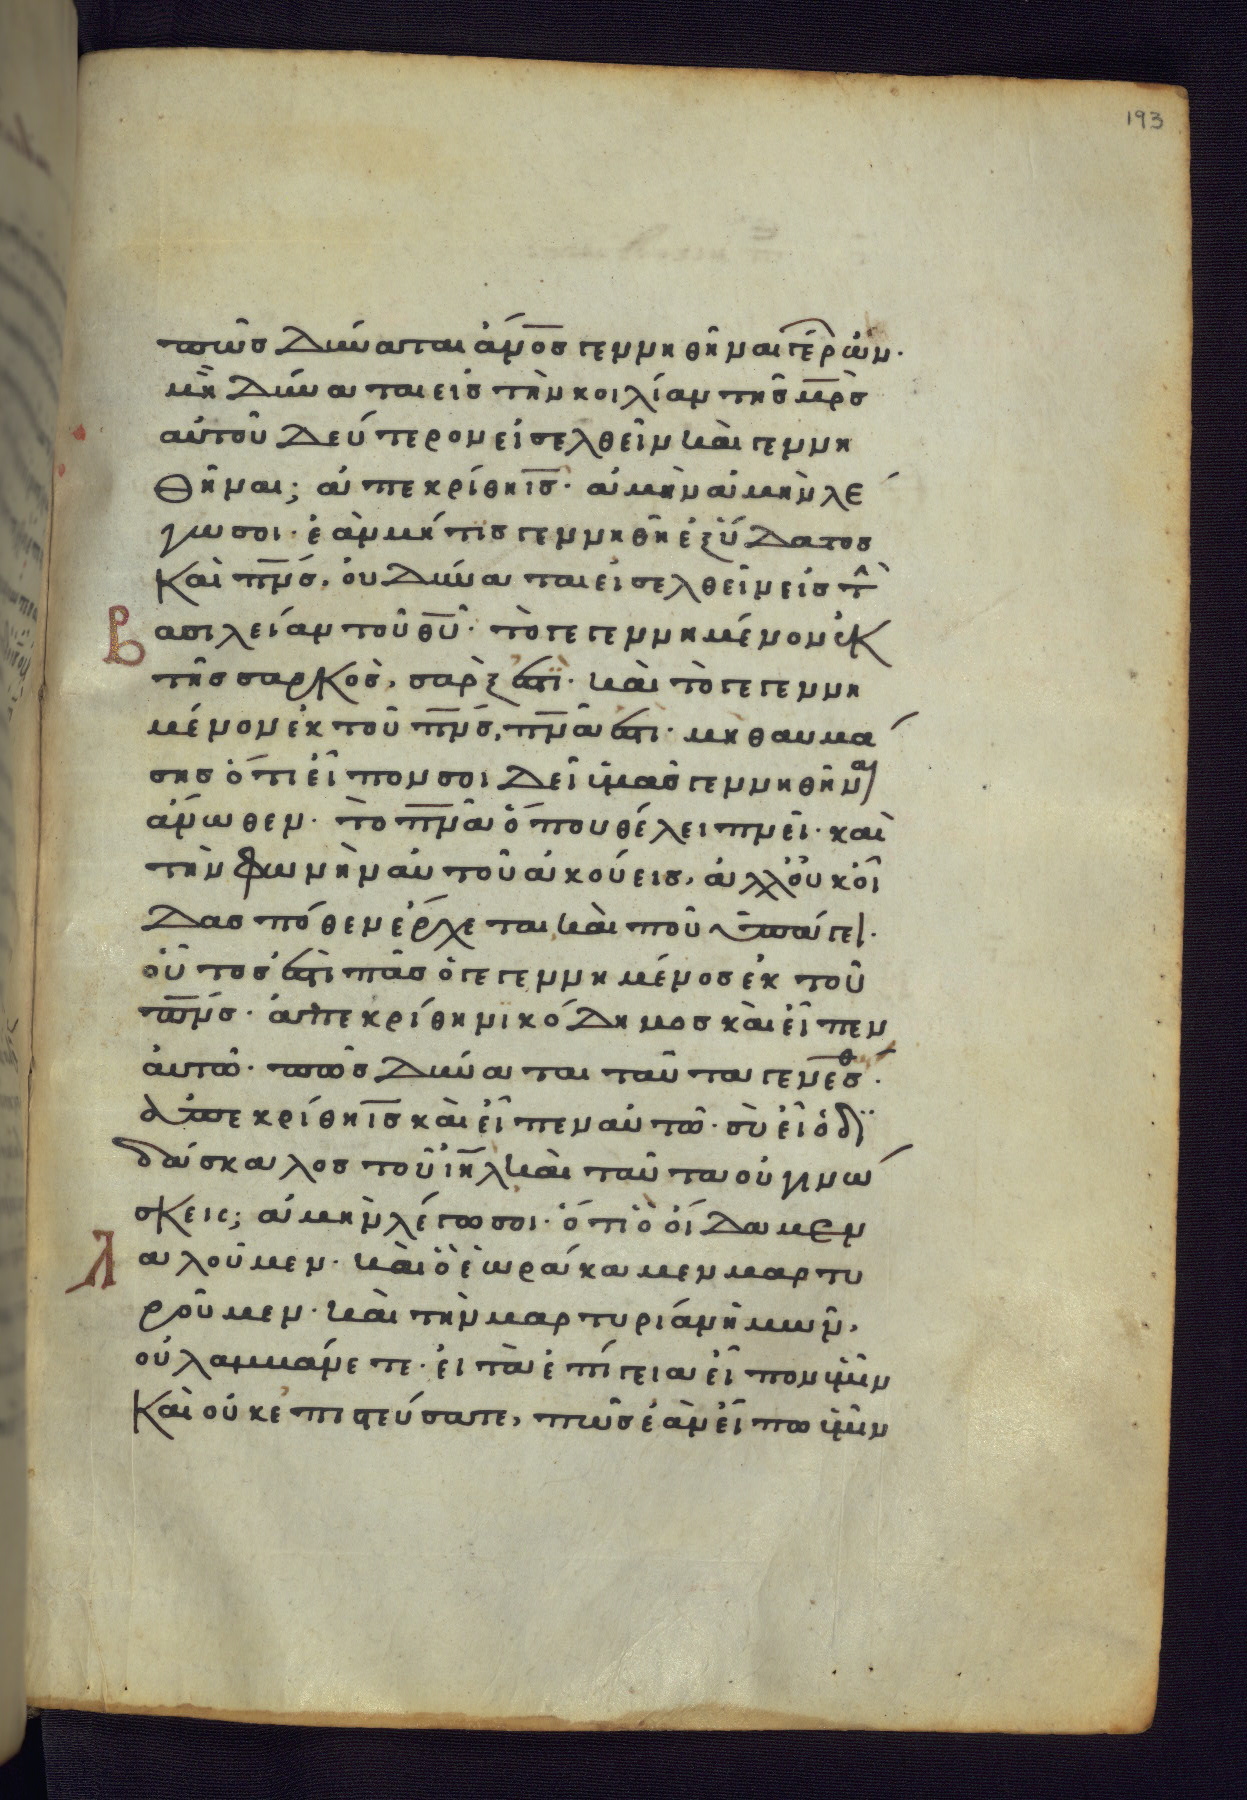 193
πῶς δύναται ἄν̅ο̅ς γεννηθῆναι γέρων·
μὴ δύναται εἰς τὴν κοιλίαν τῆς μ̅ρ̅ς
αὐτοῦ δεύτερον εἰσελθεῖν καὶ γεννη
θῆναι; ἀπεκρίθη ι̅ς̅· ἀμὴν ἀμὴν λέ
γω σοι· ἐὰν μή τις γεννηθῆ ἐξ ὕδατος
καὶ π̅ν̅ς, οὐ δύναται εἰσελθεῖν εἰς τὴ
Βασιλείαν τοῦ θ̅υ̅· τὸ γεγεννημένον ἐκ
τῆς σαρκὸς, σάρξ ἐστι· καὶ τὸ γεγεννη
μένον ἐκ τοῦ π̅ν̅ς, π̅ν̅α ἐστι· μὴ θαυμά
σης ὅτι εἶπόν σοι δεῖ ὑμᾶς γεννηθῆναι
ἄνωθεν· τὸ π̅ν̅α ὅπου θέλει πνεῖ· καὶ
τὴν φωνὴν αὐτοῦ ἀκούεις, ἀλλ' οὐκ οἶ
δας πόθεν ἔρχεται καὶ ποῦ ὑπάγει·
οὕτος ἐστὶ πᾶς ὁ γεγεννημένος ἐκ τοῦ
π̅ν̅ς· ἀπεκρίθη νικόδημος καὶ εἶπεν
αὐτῶ· πῶς δύναται ταῦτα γενέσθ·
ἀπεκρίθη ι̅ς̅ καὶ εἶπεν αὐτῶ· σὺ εἶ ὁ δϊ
δάσκαλος τοῦ ι̅η̅λ καὶ ταῦτα οὐ γινώ
σκεις; ἀμὴν λέγω σοι· ὅτι ὃ οἴδαμεν
Λαλοῦμεν· καὶ ὃ ἑωράκαμεν μαρτυ
ροῦμεν· καὶ τὴν μαρτυρίαν ἡμῶν,
οὐ λαμβάνετε· εἰ τὰ ἐπίγεια εἶπον ὑμῖν
καὶ οὐκ ἐπιστεύσατε, πῶς ἐὰν εἴπω ὑμῖν